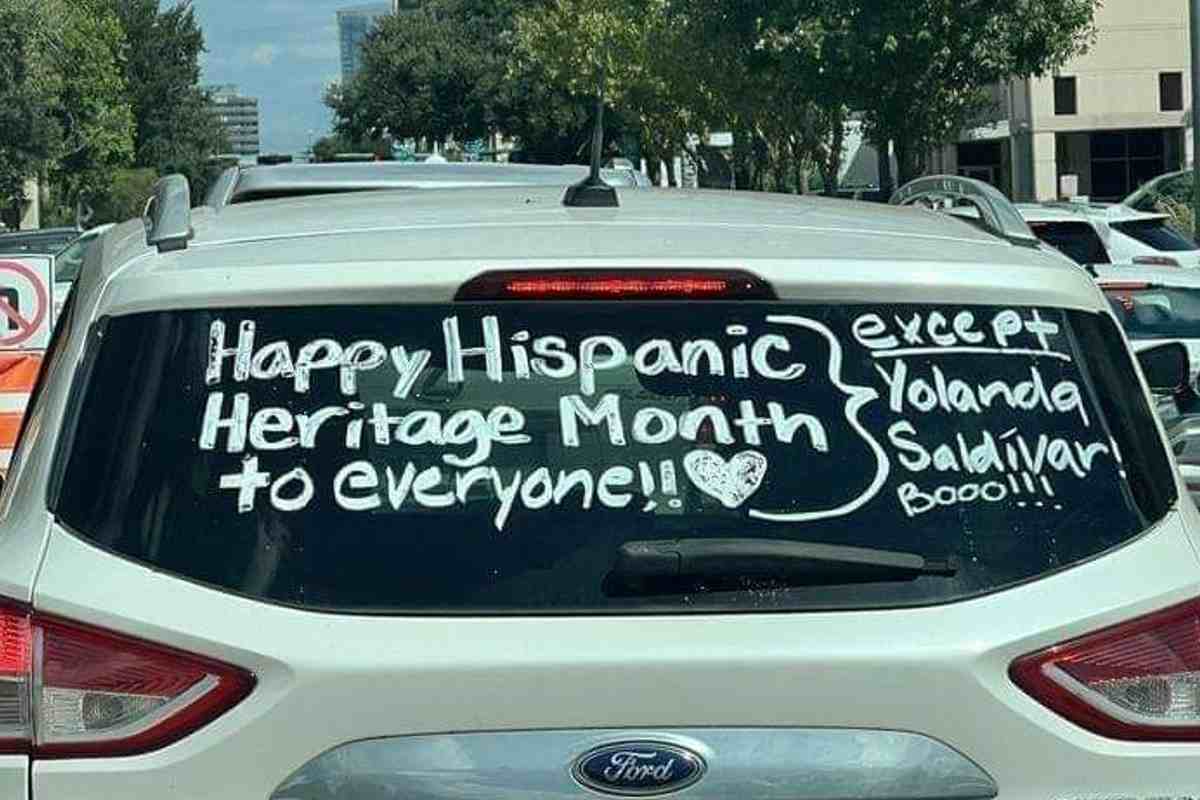 Happy Hispanic
Heritage Month
to everyone!! ♥
except
Yolanda
Saldívar!
Booo!!!
Ford